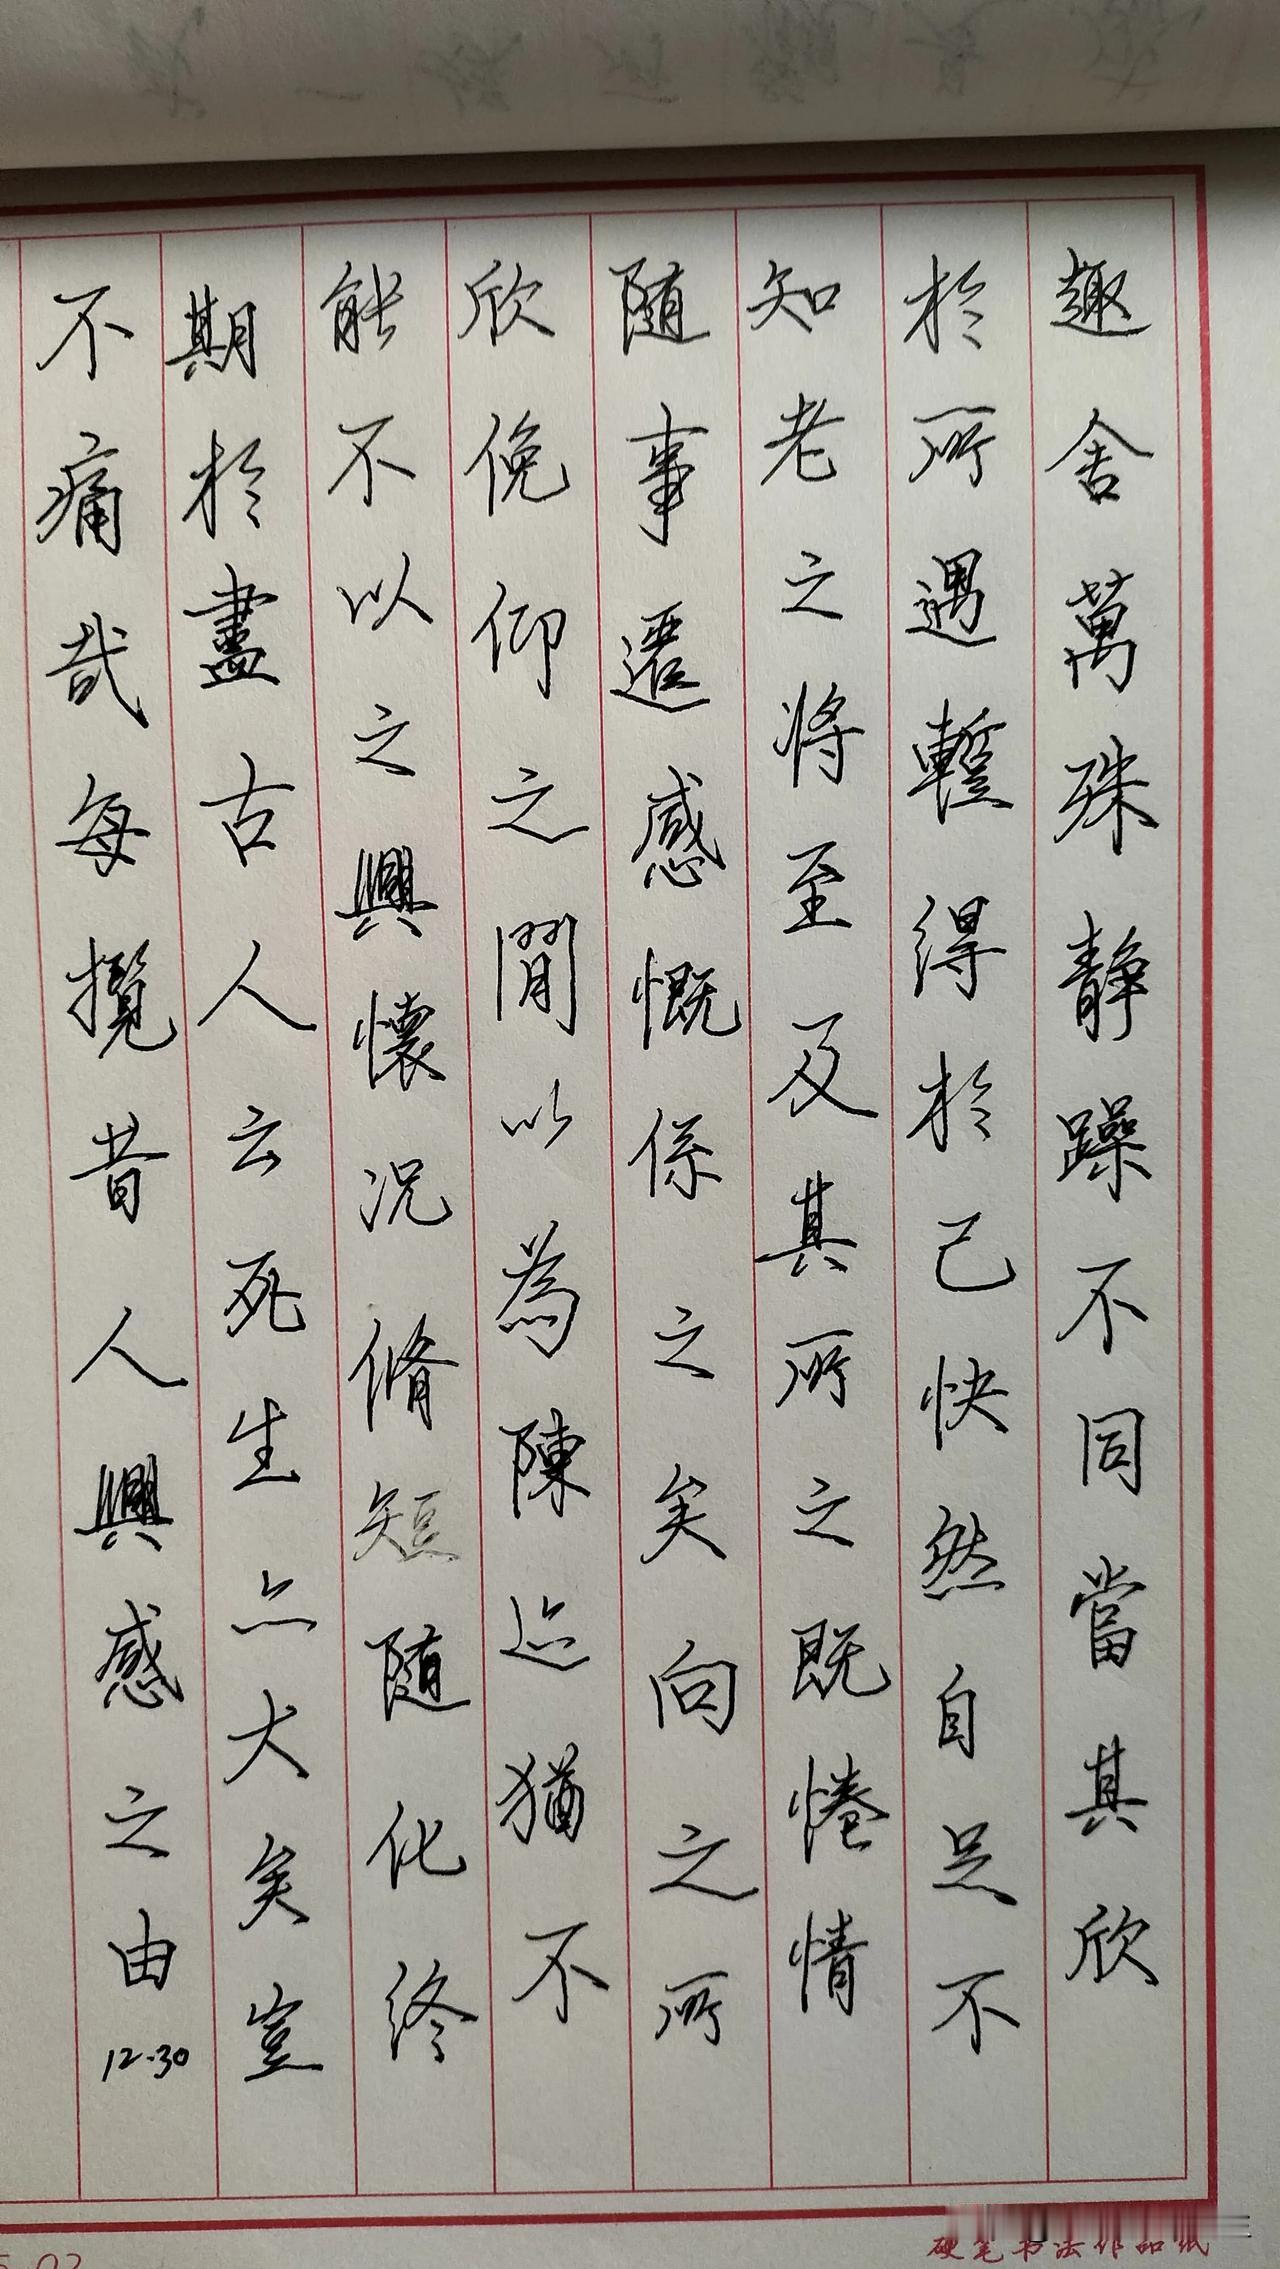 趣舍萬殊静躁不同當其欣
於所遇蹔得於己快然自足不
知老之将至及其所之既惓情
随事遷感慨係之矣向之所
欣俛仰之閒以為陳迹猶不
能不以之興懷况脩短随化終
期於盡古人云死生亦大矣豈
不痛哉每攬昔人興感之由
12.30
硬笔书法作品纸